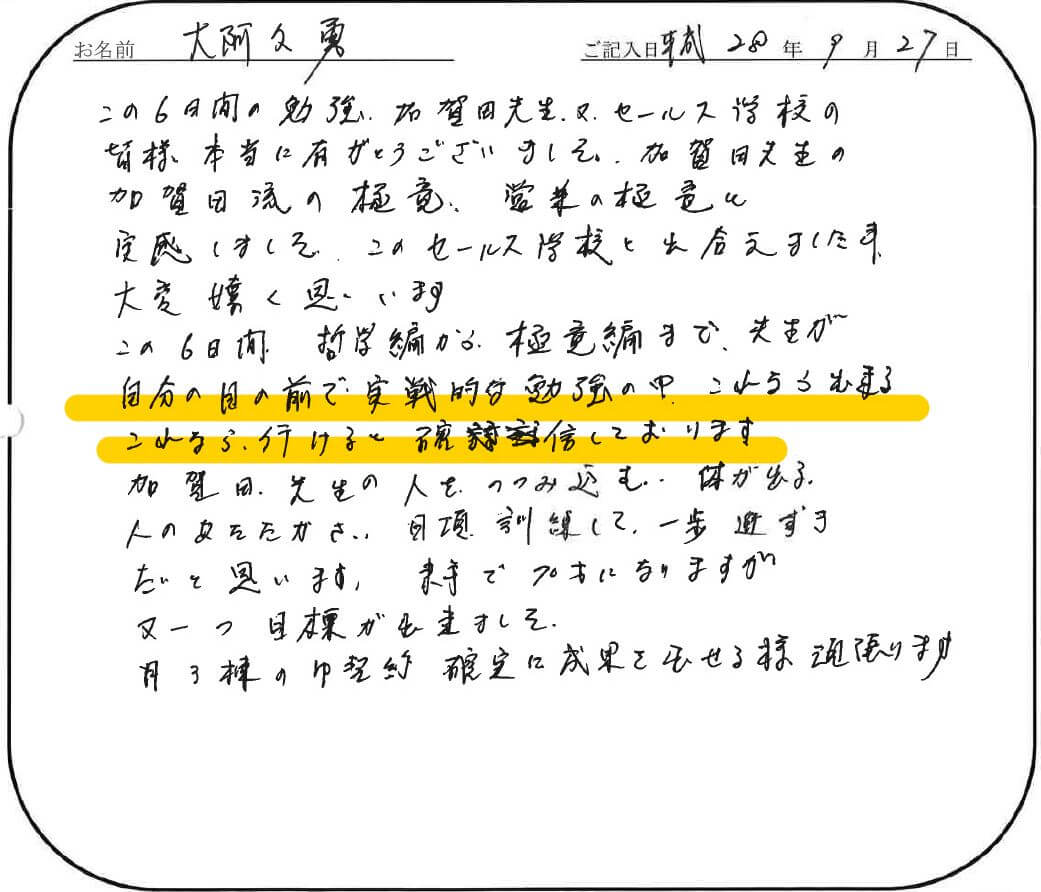 お名前 大阿久勇 ご記入日 平成28年9月27日
この6日間の勉強、加賀田先生、又、セールス学校の
皆様、本当に有がとうございました。加賀田先生の
加賀田流の極意、営業の極意を
実感しました。このセールス学校と出合えました事、
大変嬉く思います
この6日間、哲学編から極意編まで、先生が
自分の目の前で実戦的な勉強の中、これなら出来る
これなら、行けると確信しております
加賀田先生の人をつつみ込む、体が出る、
人のあたたかさ、日頃訓練して、一歩近ずき
たいと思います。来年で70才になりますが
又一つ目標が出来ました。
月3棟の中契約確定に成果を出せる様頑張ります